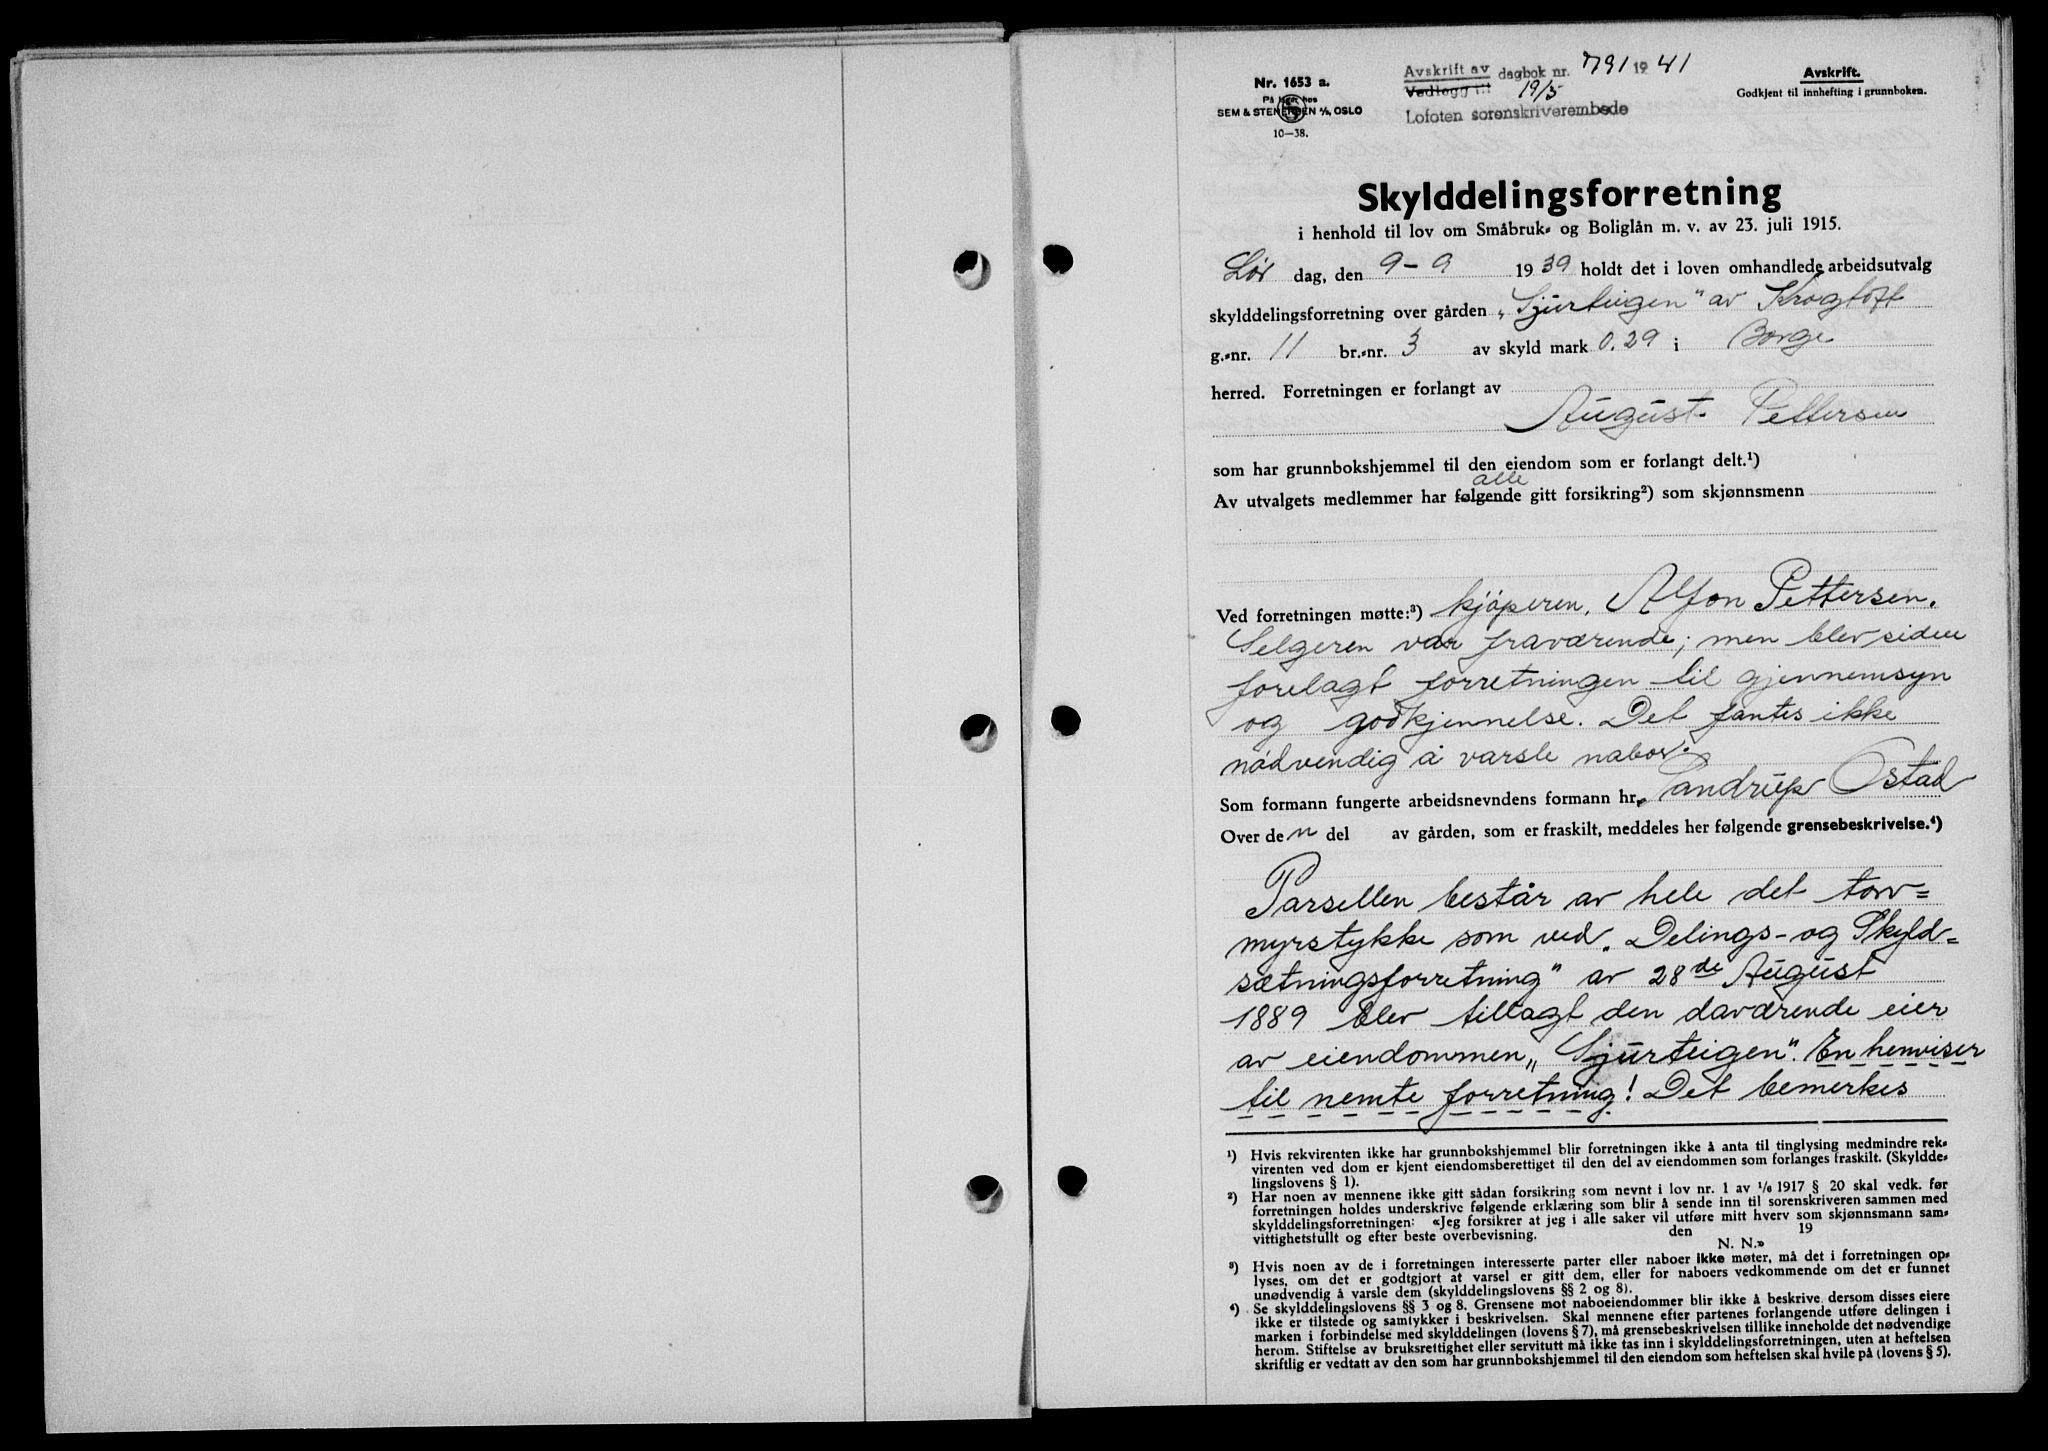 Nr. 1653 a.
På lager hos
SEM & STENERSEN A/S, OSLO
10—38.
Avskrift av dagbok nr. 791 1941
Vedlegg til 19/5
Lofoten sorenskriverembede
Avskrift.
Godkjent til innhefting i grunnboken.
Skylddelingsforretning
i henhold til lov om Småbruk- og Boliglån m. v. av 23. juli 1915.
Lør dag, den 9-9 1939 holdt det i loven omhandlede arbeidsutvalg
skylddelingsforretning over gården „Sjurteigen" av Krogtoft
g.-nr. 11 br.-nr. 3 av skyld mark 0.29 i Borge
herred. Forretningen er forlangt av
August Pettersen
som har grunnbokshjemmel til den eiendom som er forlangt delt.¹)
alle
Av utvalgets medlemmer har følgende gitt forsikring²) som skjønnsmenn
Ved forretningen møtte:³) kjøperen, Alfon Pettersen.
Selgeren var fraværende; men blev siden
forelagt forretningen til gjennemsyn
og godkjennelse. Det fantes ikke
nødvendig å varsle nabor.
Som formann fungerte arbeidsnevndens formann hr. Sandrup Ostad
Over den del av gården, som er fraskilt, meddeles her følgende grensebeskrivelse.⁴)
Parsellen består av hele det torv=
myrstykke som ved „Delings- og Skyld=
sætningsforretning" av 28de August
1889 blev tillagt den daværende eier
av eiendommen „Sjurteigen". En henviser
til nemte forretning! Det bemerkes
¹) Hvis rekvirenten ikke har grunnbokshjemmel blir forretningen ikke å anta til tinglysing medmindre rek-
virenten ved dom er kjent eiendomsberettiget til den del av eiendommen som forlanges fraskilt. (Skyldde-
lingslovens § 1).
²) Har noen av mennene ikke gitt sådan forsikring som nevnt i lov nr. 1 av 1/6 1917 § 20 skal vedk. før
forretningen holdes underskrive følgende erklæring som blir å sende inn til sorenskriveren sammen med
skylddelingsforretningen: «Jeg forsikrer at jeg i alle saker vil utføre mitt hverv som skjønnsmann sam-
vittighetsfullt og efter beste overbevisning. den 19
N. N.»
³) Hvis noen av de i forretningen interesserte parter eller naboer ikke møter, må det i forretningen op-
lyses, om det er godtgjort at varsel er gitt dem, eller for naboers vedkommende om det er funnet
unødvendig å varsle dem (skylddelingslovens §§ 2 og 8).
⁴) Se skylddelingslovens §§ 3 og 8. Grensene mot naboeiendommer blir ikke å beskrive dersom disses eiere
ikke er tilstede og samtykker i beskrivelsen. Skal mennene efter partenes forlangende utføre delingen i
marken i forbindelse med skylddelingen (lovens § 7), må grensebeskrivelsen tillike inneholde det nødvendige
herom. Stiftelse av bruksrettighet eller servitutt må ikke tas inn i skylddelingsforretningen, uten at heftelsen
skriftlig er vedtatt av den som har grunnbokshjemmel til den eiendom som heftelsen skal hvile på (lovens § 5).